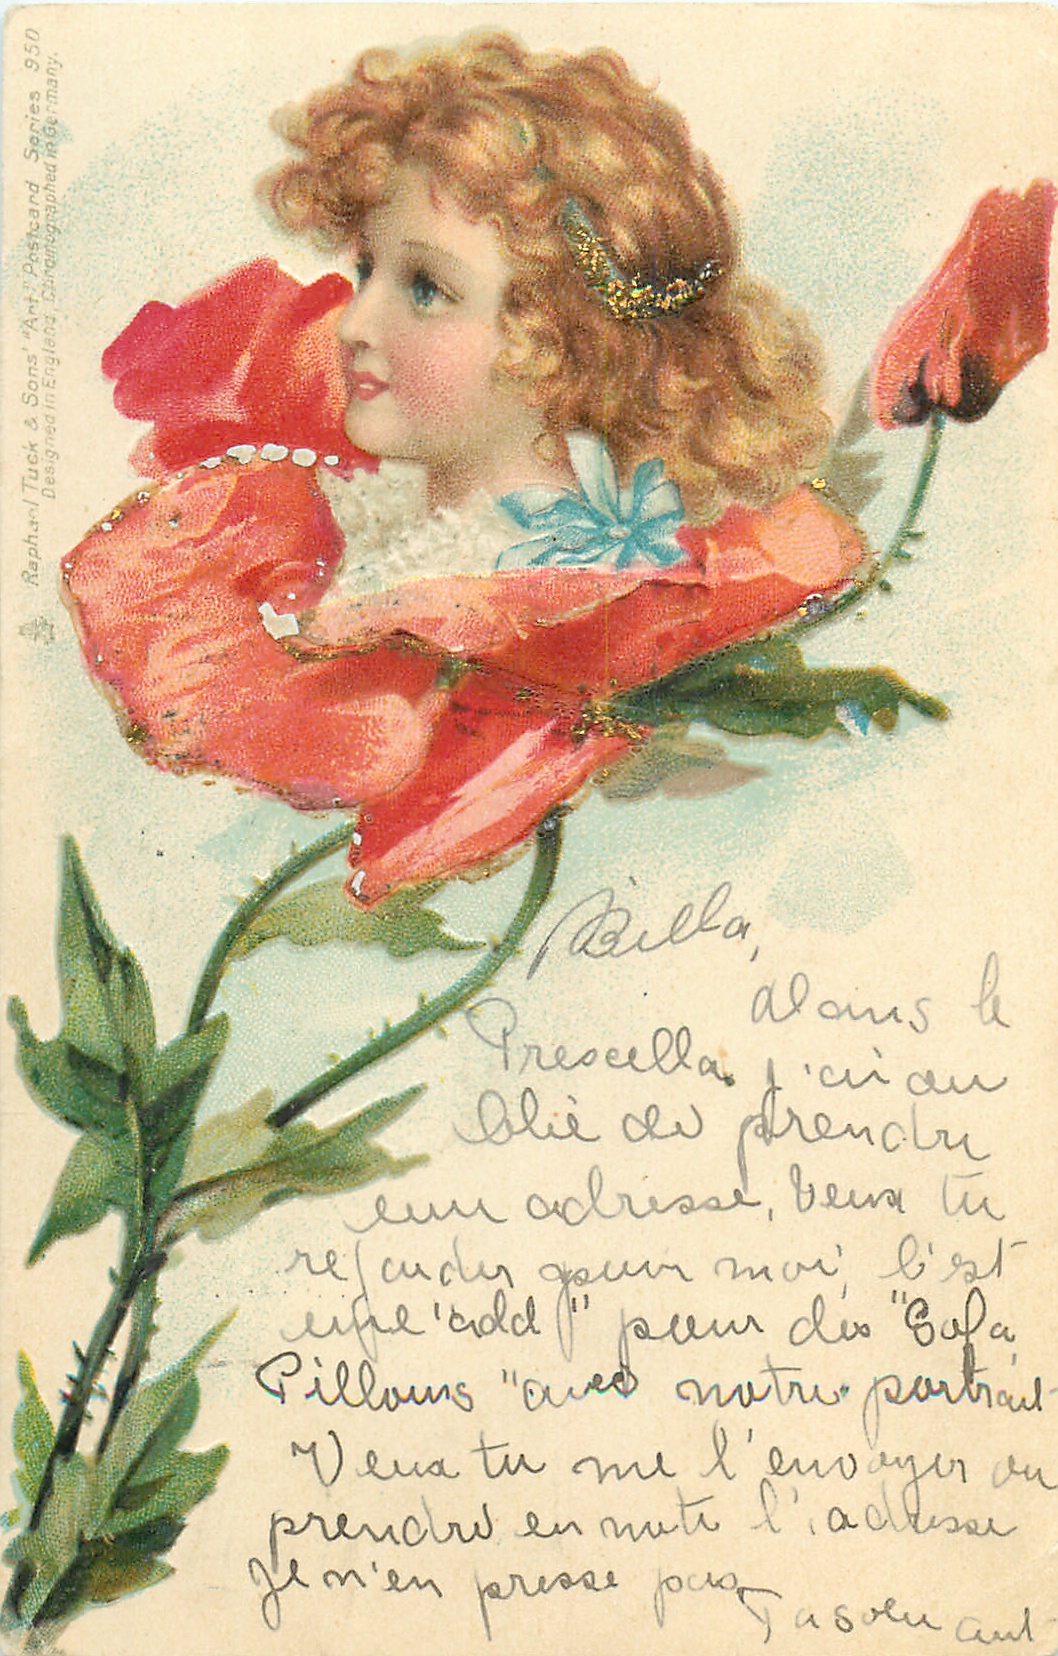 Raphael Tuck & Sons' "Art" Postcard Series 950
Designed in England, Chromographed in Germany.
Billa,
dans le
Prescilla. j'ai ou
blié de prendre
une adresse, veux tu
regarder pour moi, c'est
une "add" pour des "Sofa
Pillows" avec notre portrait
Veux tu me l'envoyer ou
prendre en note l'adresse
Je n'en presse pas
Ta soeur